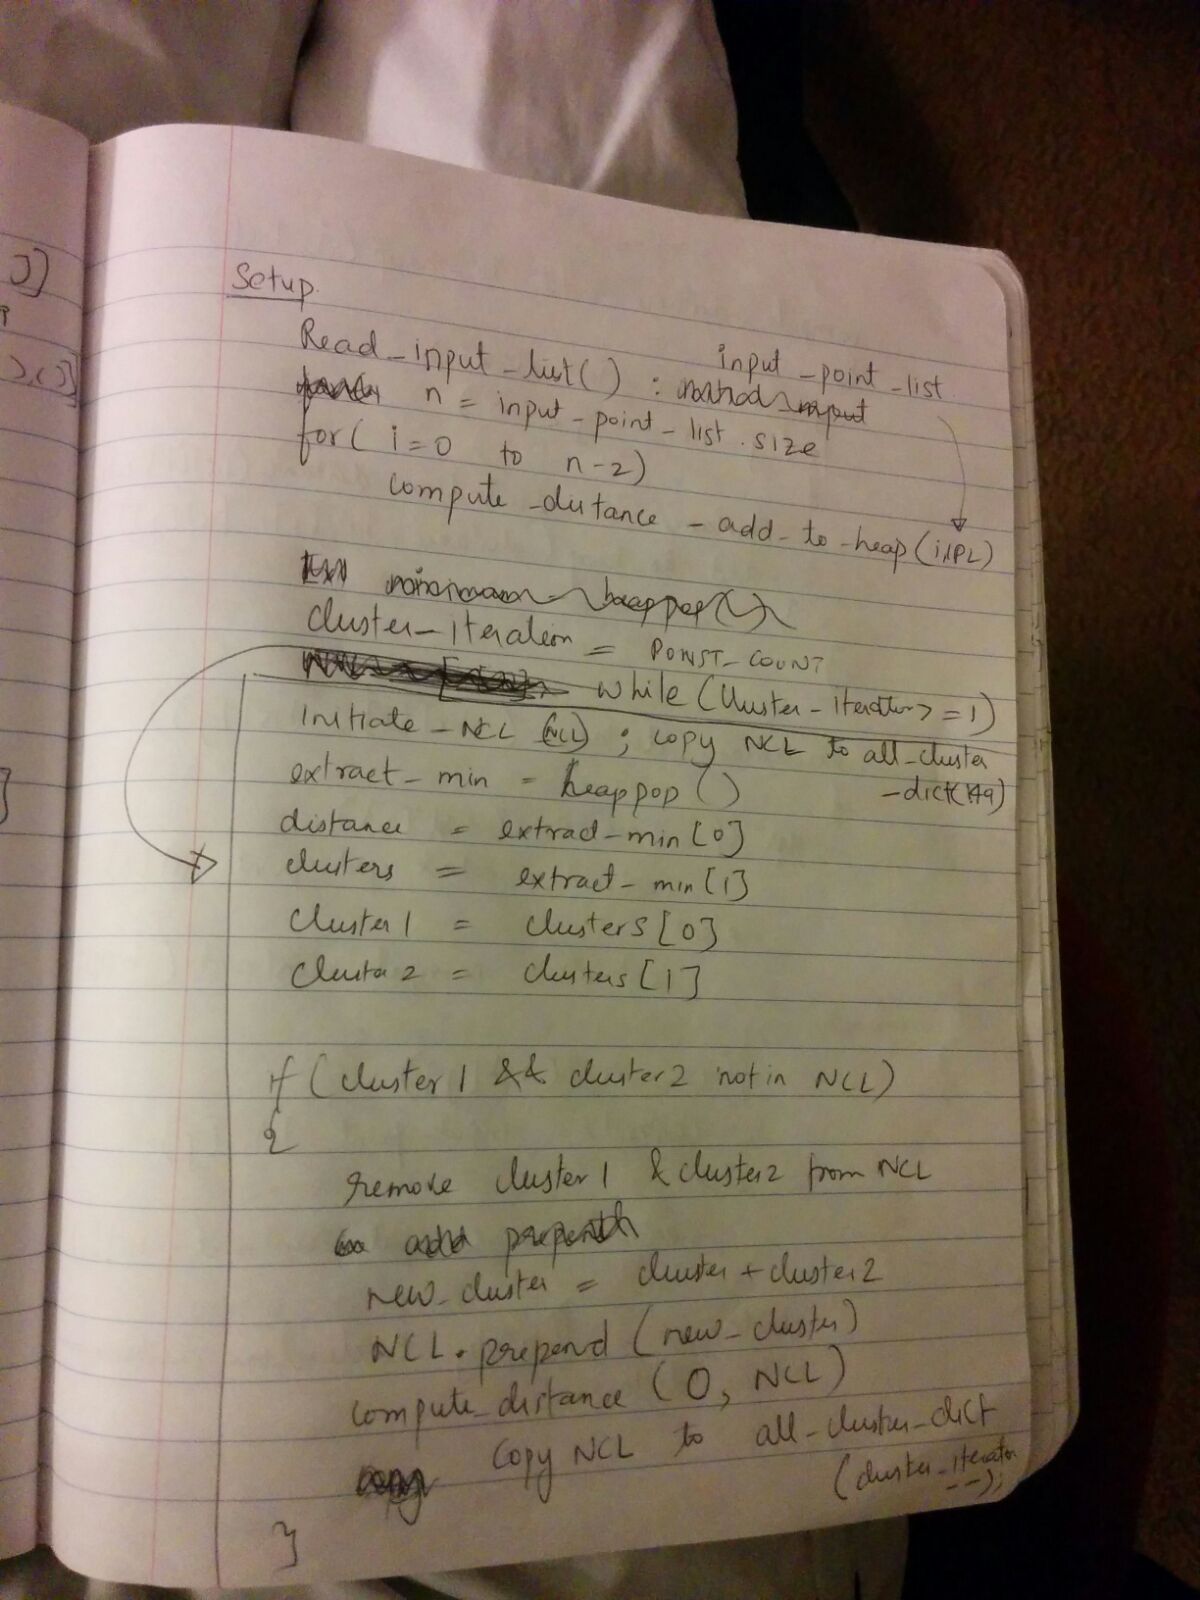 Setup
Read_input_list() : input_point_list
n = input_point_list.size
for( i=0 to n-2)
compute_distance_add_to_heap(
cluster_iteration =
while (Cluster_iterator >=1)
initiate_NCL (NCL) ; copy NCL to all_cluster
_dict(
extract_min = heappop()
distance = extract_min[0]
clusters = extract_min[1]
Cluster1 = clusters[0]
Cluster2 = clusters[1]
if (cluster1 && cluster2 not in NCL)
{
remove cluster1 & cluster2 from NCL
new_cluster = cluster + cluster2
NCL.prepend(new_cluster)
compute_distance (0, NCL)
Copy NCL to all_cluster_dict
(cluster_iterator
--);
}